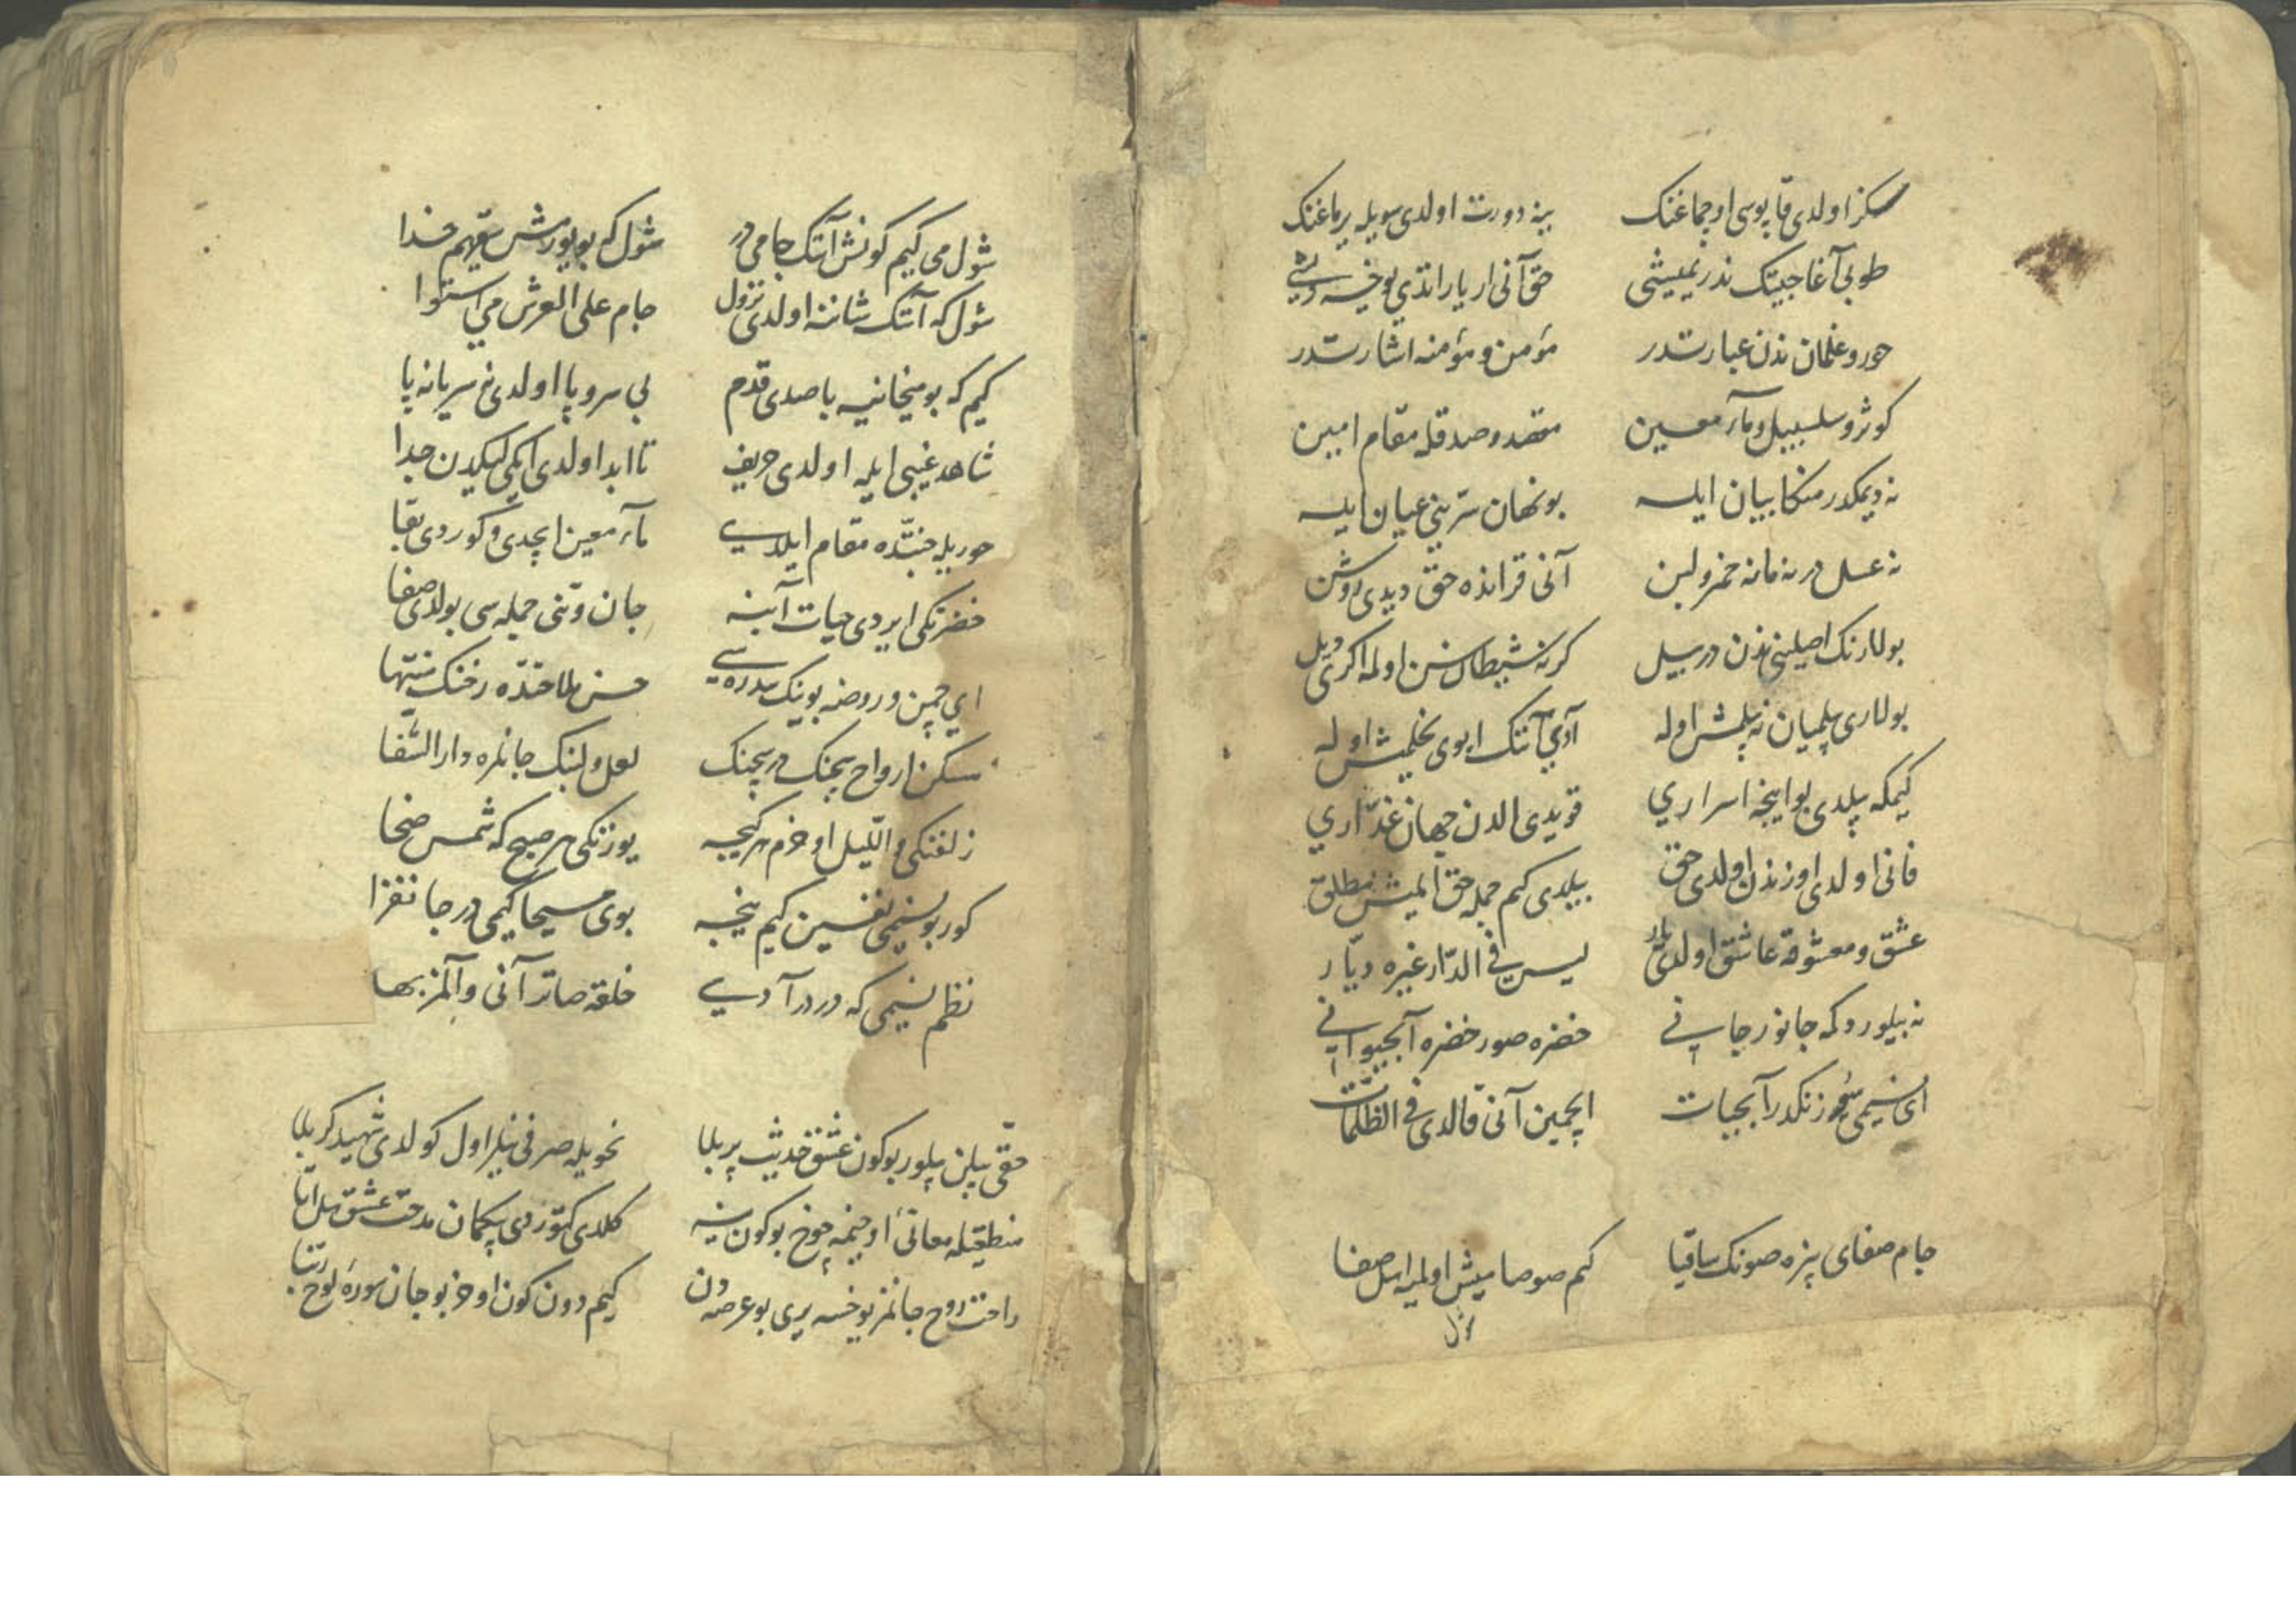 سکز اولدی قاپوسی اوچماغنک   ینه دورت اولدی سویله یرماغنک
طوبی آغاجینک ندر یمیشی   حق آنی اریارانذی یوخسه دیشی
حور و غلمان ندن عبارتدر   مؤمن و مؤمنه اشارتدر
کوثر و سلسبیل و مآء معین   مقعد و صدقله مقام امین
نه دیمکدر منکا بیان ایله   بو نهان سرّینی عیان ایله
نه عسل در نه مانه خمر و لبن   آنی قرانده حق دیدی روشن
بولارنک اصلینی ندن در بیل   کرنه شیطان سن اوله اکری دیل
بولاری بلمیان نه بلمش اوله   آدی آننک ایوی یخلمیش اوله
کیمکه بیلدی بو اینجه اسراری   قویدی الدن جهان غدّاری
فانی اولدی اوزندن اولدی حق   بیلدی کیم جمله حق ایمیش مطلق
عشق و معشوقه عاشق اولدی یار   لیس فی الدّار غیره دیّار
نه بیلور دکمه جانور جانی   خضره صور خضره آبحیوانی
ای نسیمی سوزنکدر آبحیات   ایچمین آنی قالدی فی الظلمات
جام صفای بزه صونک ساقیا   کم صوصامیش اولمیه اهل صفا
شول می کیم کونش آننک جامی در   شول که بویورمش سقیهم خدا
شول که آننک شاننه اولدی نزول   جام علی العرش می استوا
کیم که بو میخانیه باصدی قدم   بی سر و پا اولدی نه سر یا نه پا
شاهد غیبی ایله اولدی حریف   تا ابد اولدی ایکیلیکدن جدا
حوریله جنّتده مقام ایلدی   مآء معین ایچدی و کوردی بقا
خضرتکی ایردی حیات آبنه   جان و تنی جمله سی بولدی صفا
ای چمن و روضه بوینک سدره سی   حسن ملاحتده رخنک منتها
مسکن ارواح سچنک در سچنک   لعل لبنک جانلره دار الشفا
زلفنکی و اللّیل اوخرم هر کیجه   یوزنکی هر صبح که شمس ضحا
کور بو نسیمی نفسین کیم نیجه   بوی مسیحا کیمی در جانفزا
نظم نسیمی که درر آدی   خلقه صاتر آنی و آلمز بها
حقی بیلن بیلور بوکون عشق حدیثی بر بلا   نحویله صرفی نیلر اول کولدی شهید کربلا
منطقیله معانی اوخیمه چوخ بوکون ینه   کلدی کتوردی پیکمان مدحت عشق هل اتا
راحت روح جانمز یوخسه یری بو عرصه دن   کیم دون کون اوخر بو جان سوره لوح ربّنا